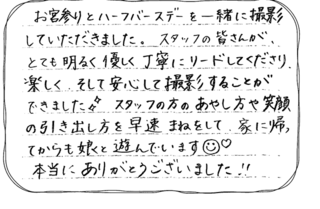 お宮参りとハーフバースデーを一緒に撮影
していただきました。スタッフの皆さんが、
とても明るく優しく丁寧にリードしてくださり
楽しく そして安心して撮影することが
できました✨ スタッフの方のあやし方や笑顔
の引き出し方を早速まねをして、家に帰っ
てからも娘と遊んでいます☺♡
本当にありがとうございました!!